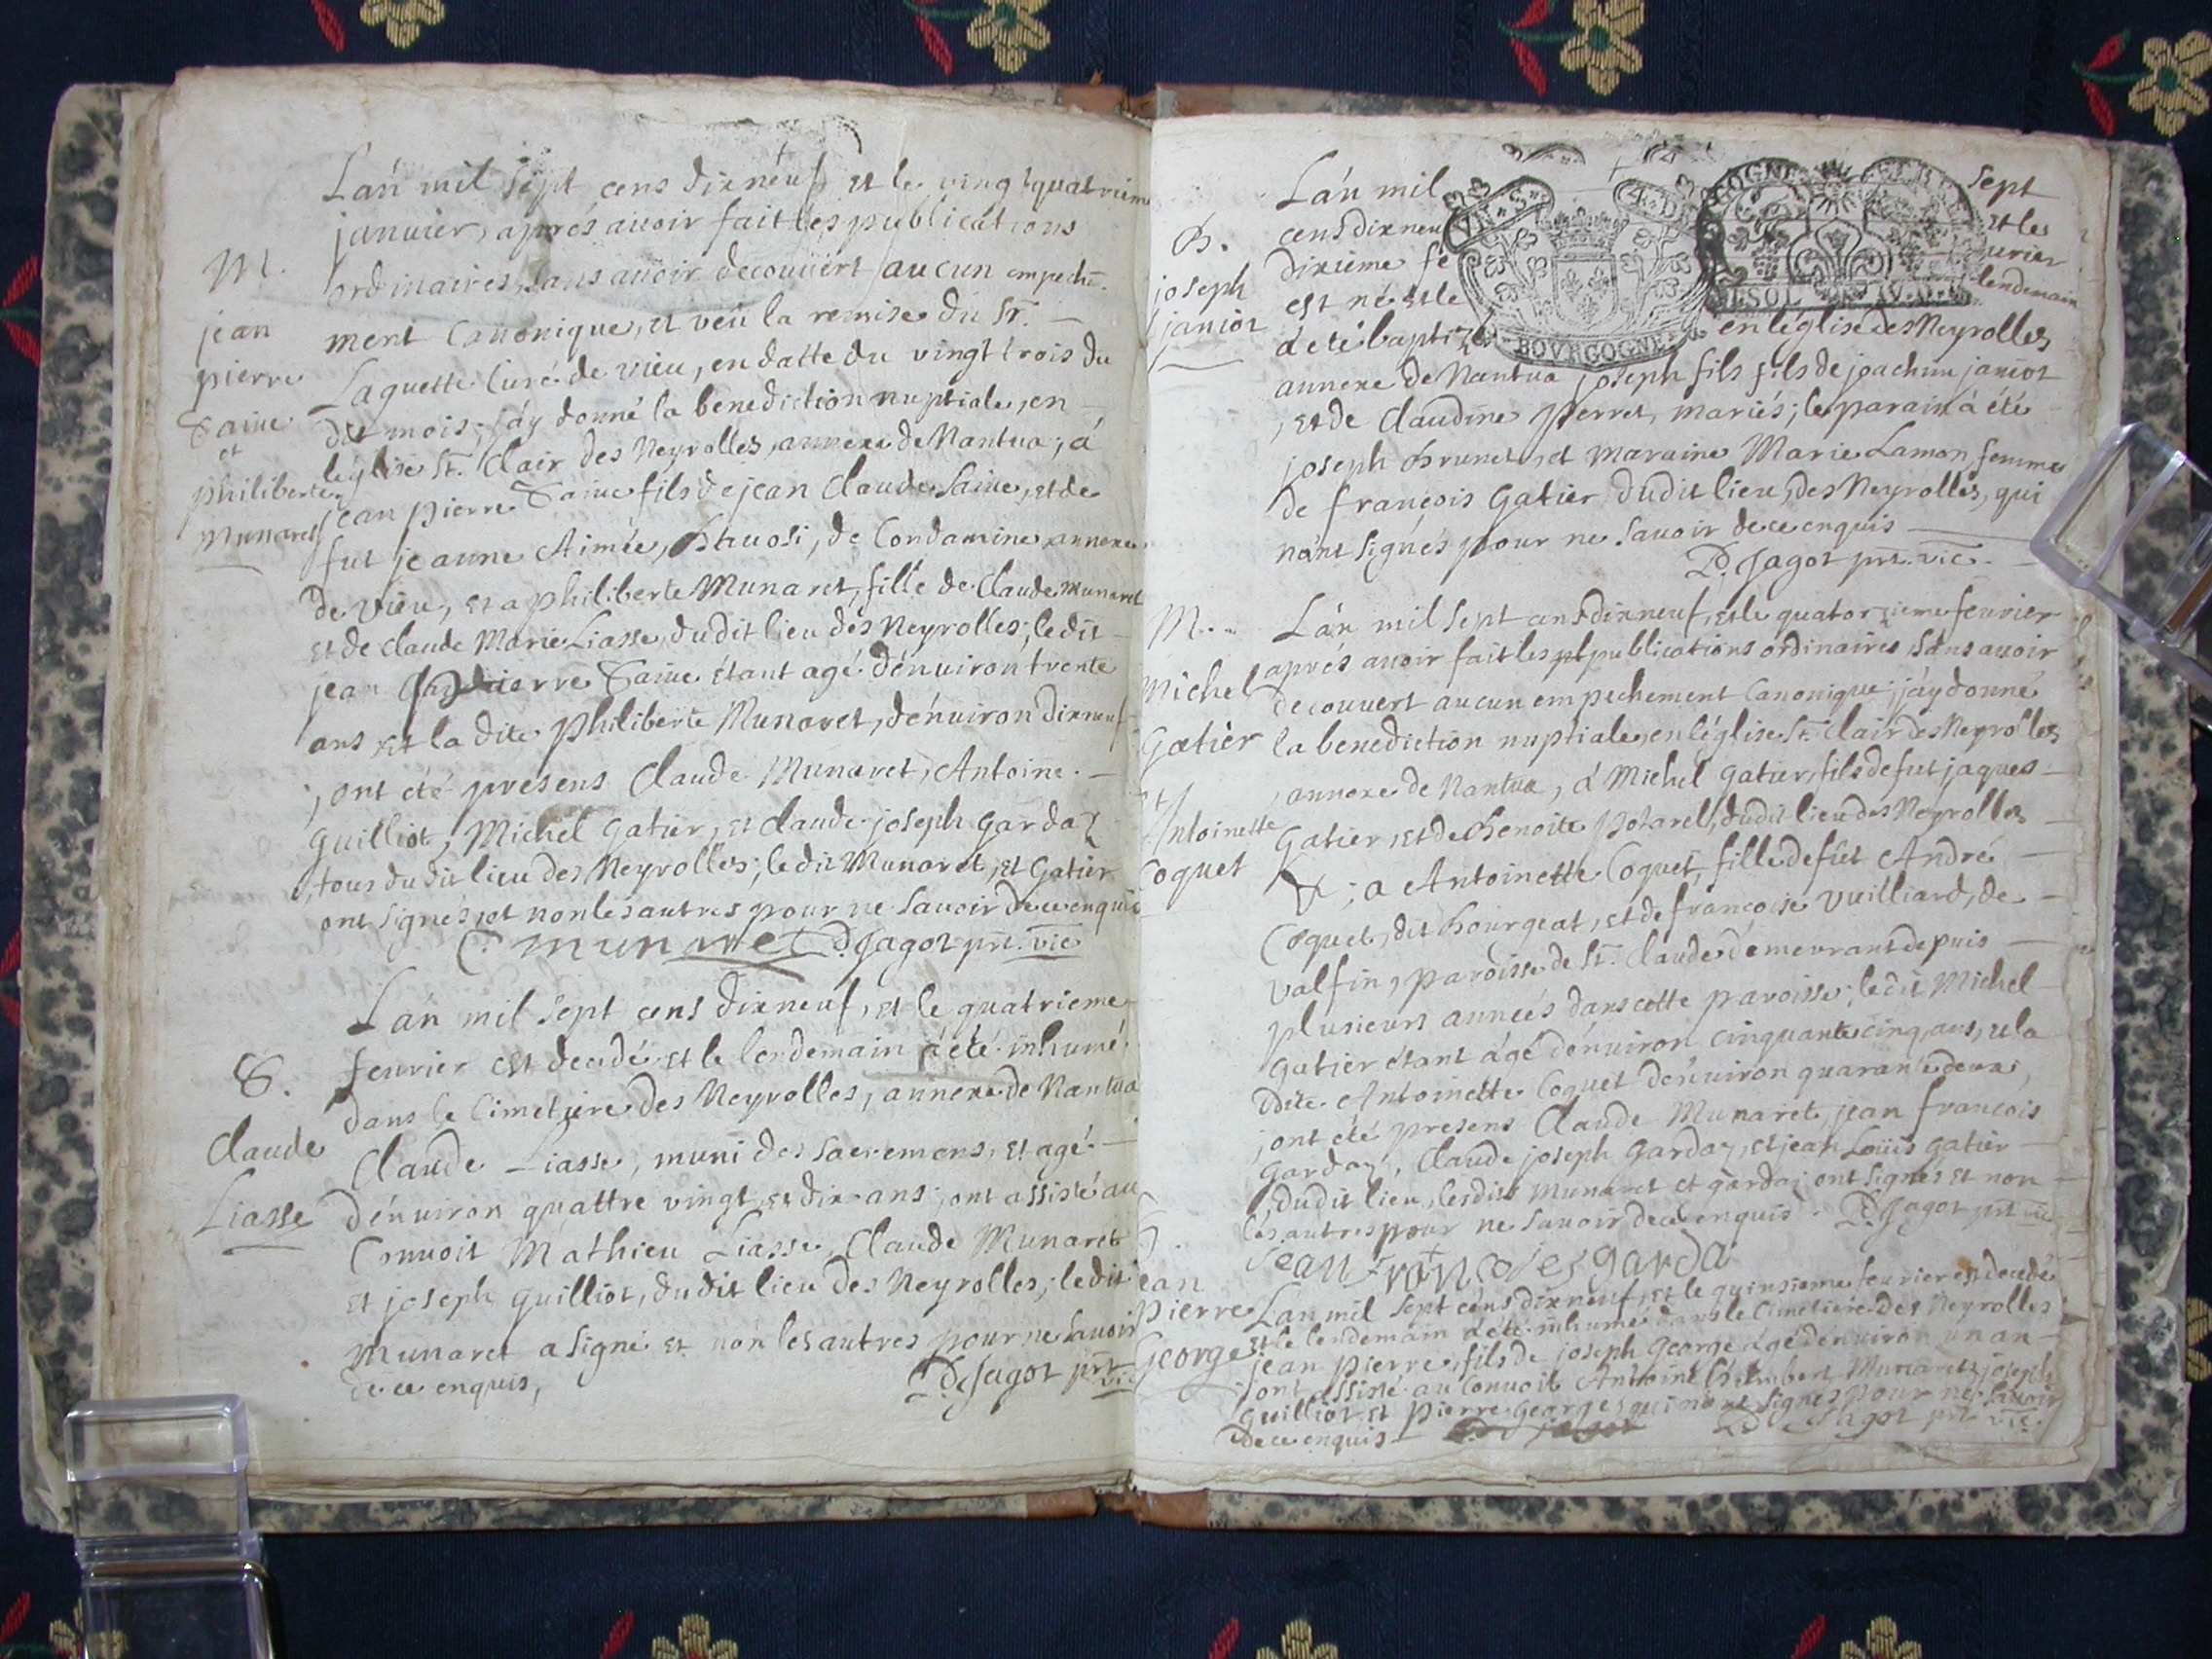 Lán mil sept cens dixneuf et le vingtquatrieme
januier, aprés auoir fait les publications
M.
ordinaires, sans auoir decouuert aucun empeche-
jean
ment Canonique, et veû la remise du Sr.
pierre
Laguette Curé de vieu, en datte du vingt trois du
Saiue
dit mois, j'áy donné la benediction nuptiale, en
et
léglise St. Clair des Neyrolles, annexe de Nantua, á
philiberte
jean pierre Saiue fils de jean Claude Saiue, et de
Munaret
fut jeanne Aimée, de Condamine annexe
de vieu, et a philiberte Munaret, fille de Claude Munaret
et de Claude Marie Liasse, dudit lieu des Neyrolles; ledit
jean pierre Saiue étant agé dénuiron trente
ans et la dite philiberte Munaret, dénuiron dixneuf
, ont été presens Claude Munaret, Antoine
Guilliot, Michel Gatier, et Claude joseph Gardaz
, tous dudit lieu des Neyrolles; ledit Munaret, et Gatier
ont signés, et non les autres pour ne sauoir de ce enquis
C. munaret D. Jagot prt. vic
Lán mil sept cens dixneuf, et le quatrieme
S.
feurier est decedé et le lendemain á été inhumé
dans le Cimetiere des Neyrolles, annexe de Nantua
Claude
Claude Liasse, muni des sacremens, et agé
Liasse
dénuiron quattre vingt et dix ans; ont assisté au
Conuoit Mathieu Liasse, Claude Munaret
et joseph guilliot, dudit lieu des Neyrolles; ledit
Munaret a signé et non les autres pour ne sauoir
de ce enquis,
D. Jagot prt vic
Lán mil sept
B.
cens dixneuf et le
joseph
dixieme feurier
janior
est né et le lendemain
á eté baptizé en léglise des Neyrolles
BOVRGOGNE
annexe de Nantua joseph fils fils de joachim janior
, et de Claudine perret, mariés; le parain á été
joseph Brunet, et maraine Marie Lamon femme
de françois Gatier dudit lieu, des Neyrolles, qui
nónt signés pour ne sauoir de ce enquis
D. Jagot prt. vic.
M.
Lán mil sept cens dixneuf, et le quatorzieme feurier
aprés auoir fait les publications ordinaires, sans auoir
Michel
decouuert aucun empechement Canonique; j'áy donné
Gatier
la benediction nuptiale, en léglise St. Clair des Neyrolles
et
, annexe de Nantua, á Michel Gatier, fils de fut jaques
Antoinette
Gatier, et de Benoite, dudit lieu des Neyrolles
Coquet
; a Antoinette Coquet, fille de fût André
Coquet, dit Bourgeat, et de françoise vuilliard, de
valfin, paroisse de St. Claude demeurant depuis
plusieurs années dans cette paroisse; ledit Michel
Gatier étant ágé dénuiron cinquante cinq ans, et la
dite Antoinette Coquet dénuiron quarante deux
, ont été presens Claude Munaret, jean françois
Gardaz, Claude joseph Gardaz, et jean Loüis Gatier
, dudit lieu, lesdits Munaret et gardaz ont signés et non
les autres pour ne sauoir de ce enquis. D. Jagot prt vic
jean françoies garda
S.
jean
pierre
George
Lan mil sept céns dixneuf, et le quinsieme feurier est decedé
et le lendemain á été inhumé dans le Cimetiere des Neyrolles
jean pierre, fils de joseph George ágé dénuiron un an
, ont assisté au Conuoit Antoine humbert Munaret, joseph
guilliot, et pierre George, qui nónt signés pour ne sauoir
de ce enquis D. Jagot prt. vic.